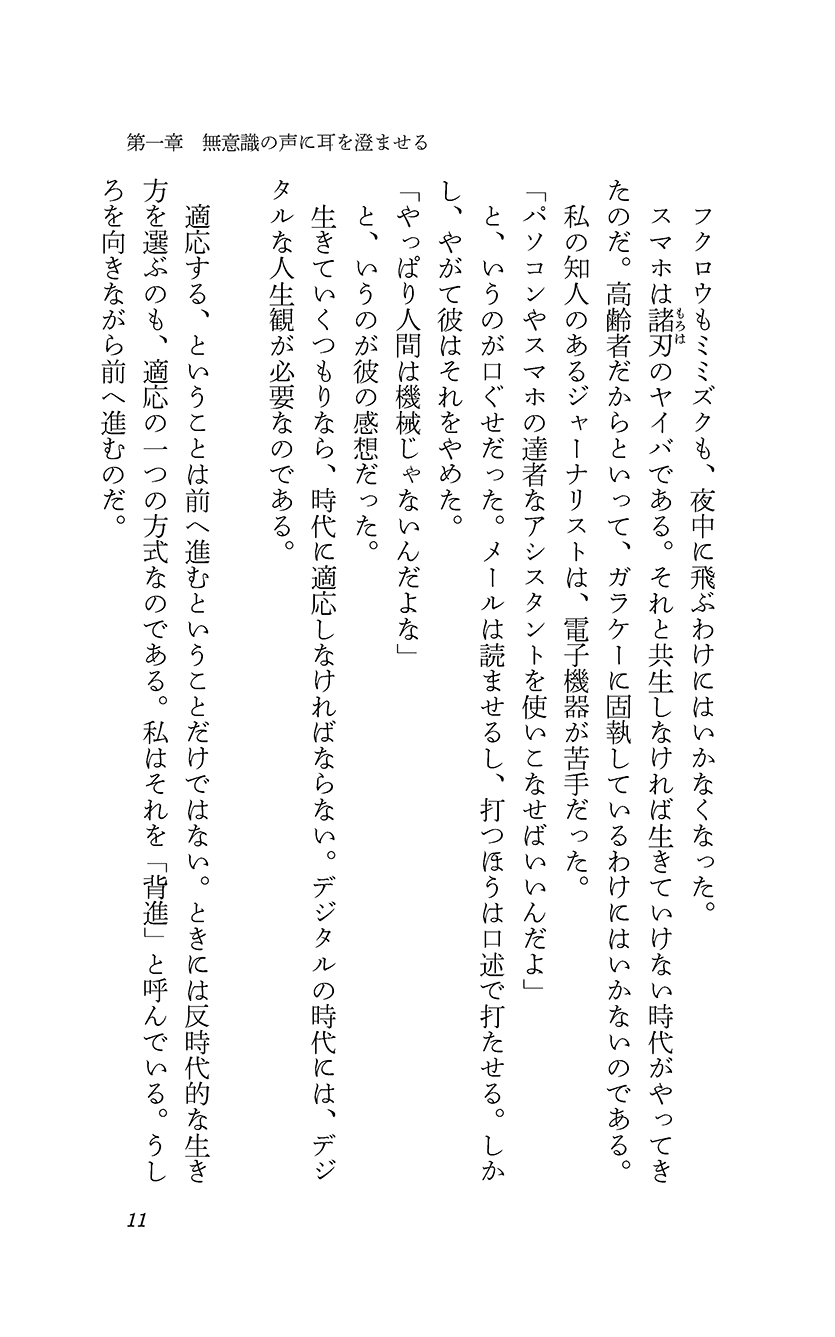 第一章　無意識の声に耳を澄ませる
フクロウもミミズクも、夜中に飛ぶわけにはいかなくなった。
スマホは諸刃のヤイバである。それと共生しなければ生きていけない時代がやってき
もろは
たのだ。高齢者だからといって、ガラケーに固執しているわけにはいかないのである。
私の知人のあるジャーナリストは、電子機器が苦手だった。
「パソコンやスマホの達者なアシスタントを使いこなせばいいんだよ」
と、いうのが口ぐせだった。メールは読ませるし、打つほうは口述で打たせる。しか
し、やがて彼はそれをやめた。
「やっぱり人間は機械じゃないんだよな」
と、いうのが彼の感想だった。
生きていくつもりなら、時代に適応しなければならない。デジタルの時代には、デジ
タルな人生観が必要なのである。
適応する、ということは前へ進むということだけではない。ときには反時代的な生き
方を選ぶのも、適応の一つの方式なのである。私はそれを「背進」と呼んでいる。うし
ろを向きながら前へ進むのだ。
11